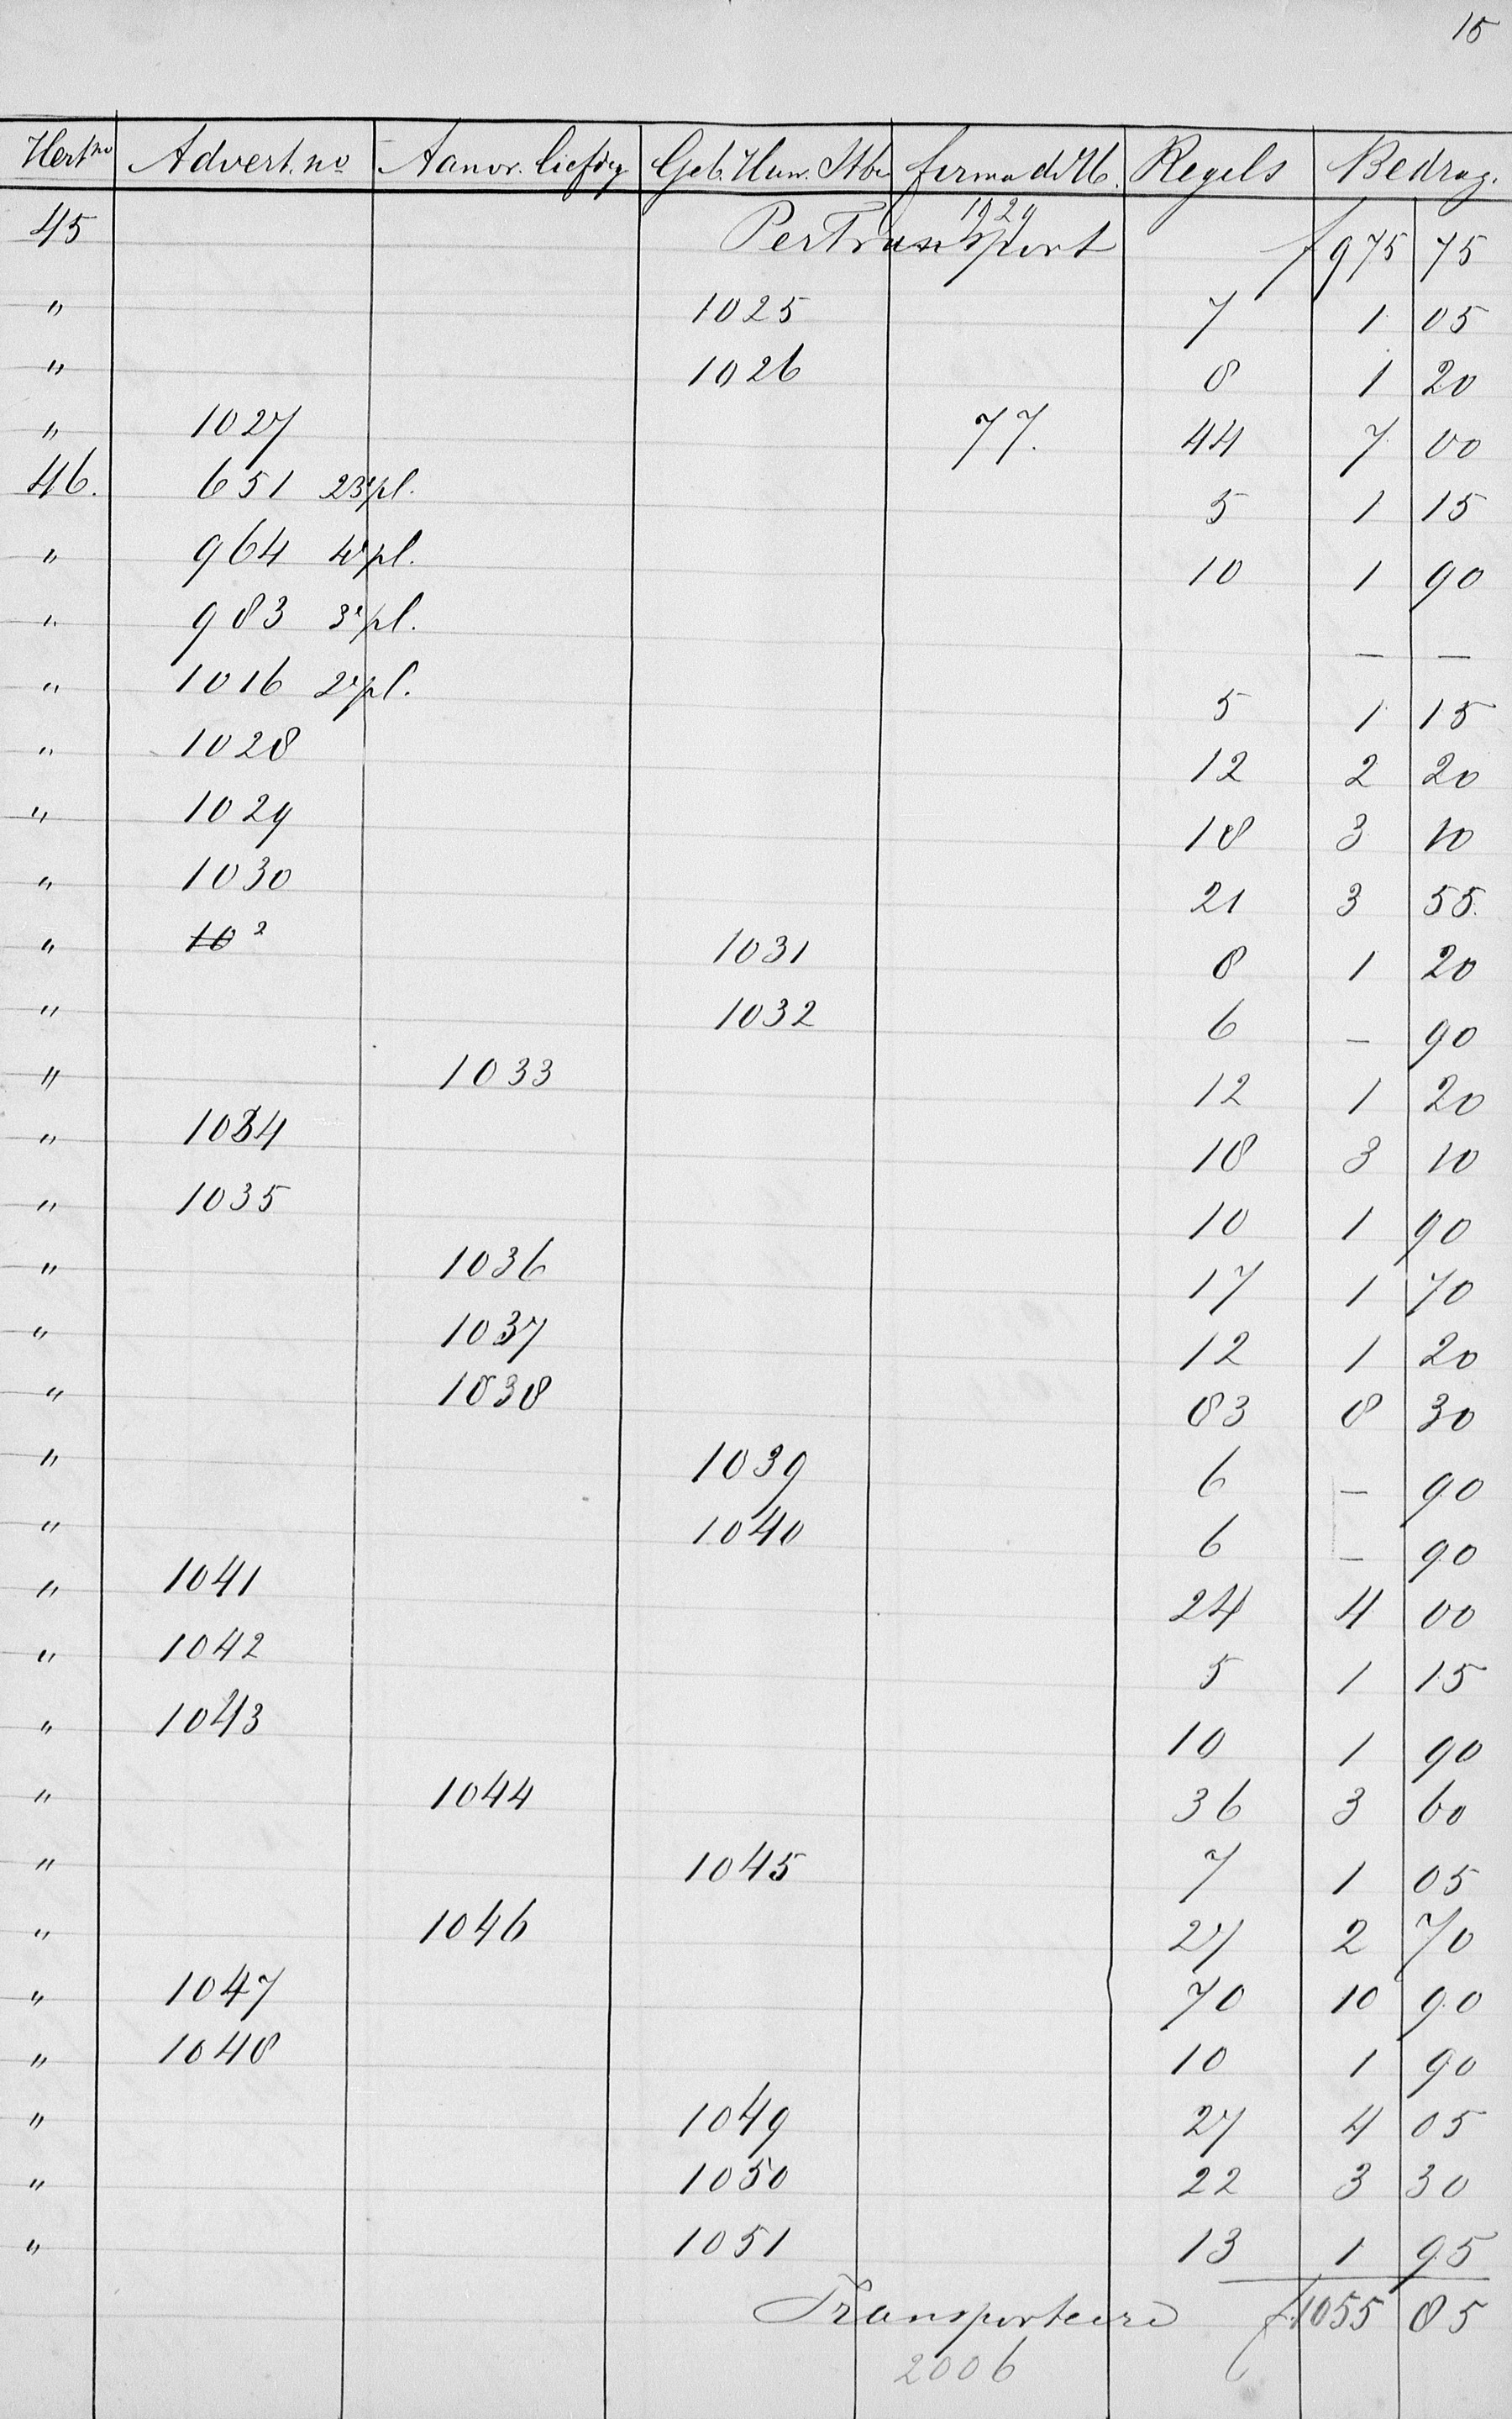 15
Advert. no Regels Bedrag.
45 Per Transport 1929 f 975 75
" 1025 7 1 05
" 1026 8 1 20
" 1027 77. 44 7 00
46. 651 23e pl. 5 1 15
" 964 4e pl. 10 1 90
" 983 3e pl. — —
" 1016 2e pl. 5 1 15
" 1028 12 2 20
" 1029 18 3 10
" 1030 21 3 55.
" 1031 8 1 20
" 1032 6 — 90
" 1033 12 1 20
" 1034 18 3 10
" 1035 10 1 90
" 1036 17 1 70
" 1037 12 1 20
" 1038 83 8 30
" 1039 6 — 90
" 1040 6 — 90
" 1041 24 4 00
" 1042 5 1 15
" 1043 10 1 90
" 1044 36 3 60
" 1045 7 1 05
" 1046 27 2 70
" 1047 70 10 90
" 1048 10 1 90
" 1049 27 4 05
" 1050 22 3 30
" 1051 13 1 95
Transporteere f 1055 85
2006